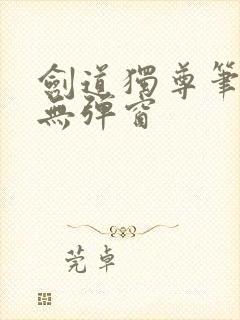 劍道獨尊筆
無彈窗
莞卓